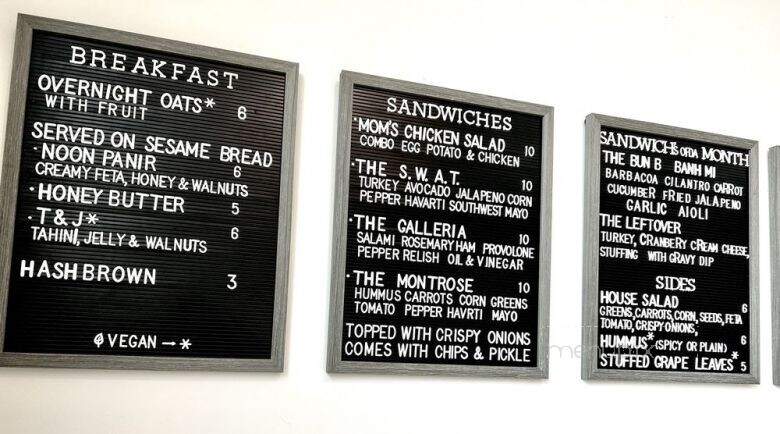 BREAKFAST
OVERNIGHT OATS* 6
WITH FRUIT
SERVED ON SESAME BREAD
·NOON PANIR 6
CREAMY FETA, HONEY & WALNUTS
·HONEY BUTTER 5
·T & J* 6
TAHINI, JELLY & WALNUTS
HASHBROWN 3
VEGAN → *
SANDWICHES
·MOM'S CHICKEN SALAD 10
COMBO EGG POTATO & CHICKEN
·THE S.W.A.T. 10
TURKEY AVOCADO JALAPENO CORN
PEPPER HAVARTI SOUTHWEST MAYO
·THE GALLERIA 10
SALAMI ROSEMARY HAM PROVOLONE
PEPPER RELISH OIL & VINEGAR
·THE MONTROSE 10
HUMMUS CARROTS CORN GREENS
TOMATO PEPPER HAVRTI MAYO
TOPPED WITH CRISPY ONIONS
COMES WITH CHIPS & PICKLE
SANDWICHS OF DA MONTH
THE BUN B BANH MI
BARBACOA CILANTRO CARROT
CUCUMBER FRIED JALAPENO
GARLIC AIOLI
THE LEFTOVER
TURKEY, CRANBERRY CREAM CHEESE,
STUFFING WITH GRAVY DIP
SIDES
HOUSE SALAD 6
GREENS, CARROTS, CORN, SEEDS, FETA
TOMATO, CRISPY ONIONS,
HUMMUS* (SPICY OR PLAIN) 6
STUFFED GRAPE LEAVES* 5